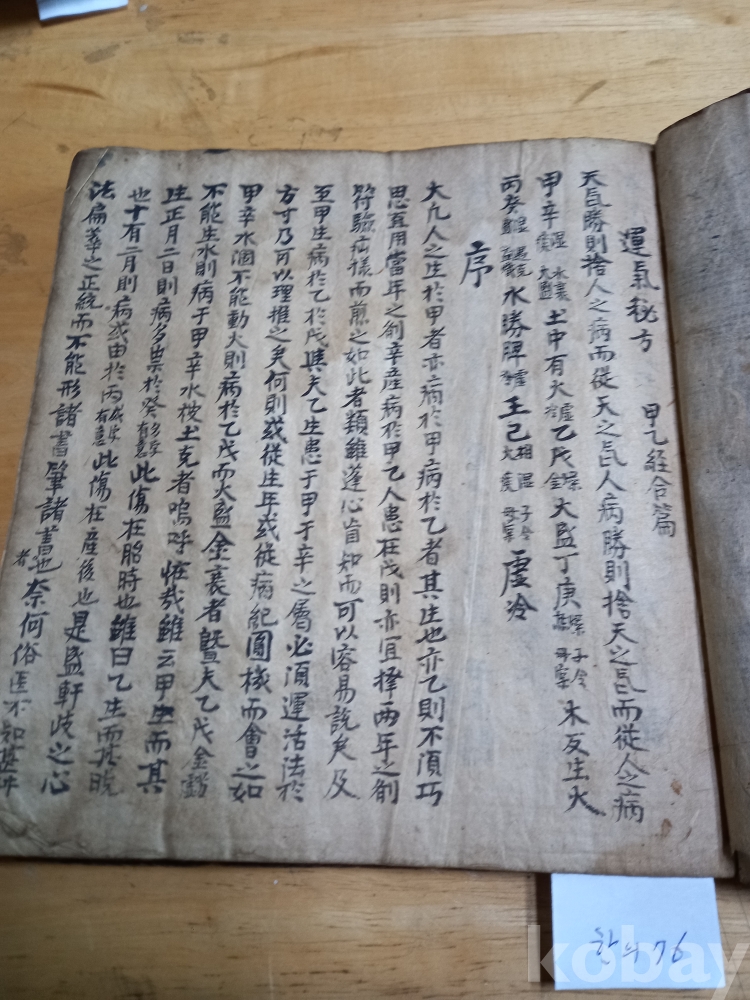 運氣秘方 甲乙経合篇
天气勝則捨人之病而従天之气人病勝則捨天之气而従人之病
甲辛 土中有火 乙戊 火盛丁庚 木反生火
丙癸 水勝脾 壬己 虛冷
序
大凡人之生於甲者亦病於甲病於乙者其生也亦乙則不須巧
思直用當年之剤辛産病於甲乙人患在戊則亦宜擇両年之剤
符驗病様而煎之如此者類雖蓬心皆知而可以容易說矣及
至甲生病於乙於戊其夫乙生患于甲于辛之屬必須運活法於
方寸乃可以理推之矣何則或従生年或従病紀圓機而會之如
甲辛水涸不能動火則病於乙戊而火盛金衰者曁夫乙戊金
不能生水則病于甲辛水 土克者嗚呼恠哉雖云甲生而其
生正月二日則病多 於癸 此傷在胎時也雖曰乙生而其
也十有二月則病或由於丙 此傷在産後也是盖軒歧之心
法扁華之正統而不能形諸書肇諸書也者奈何俗医不知
한의76
kobay